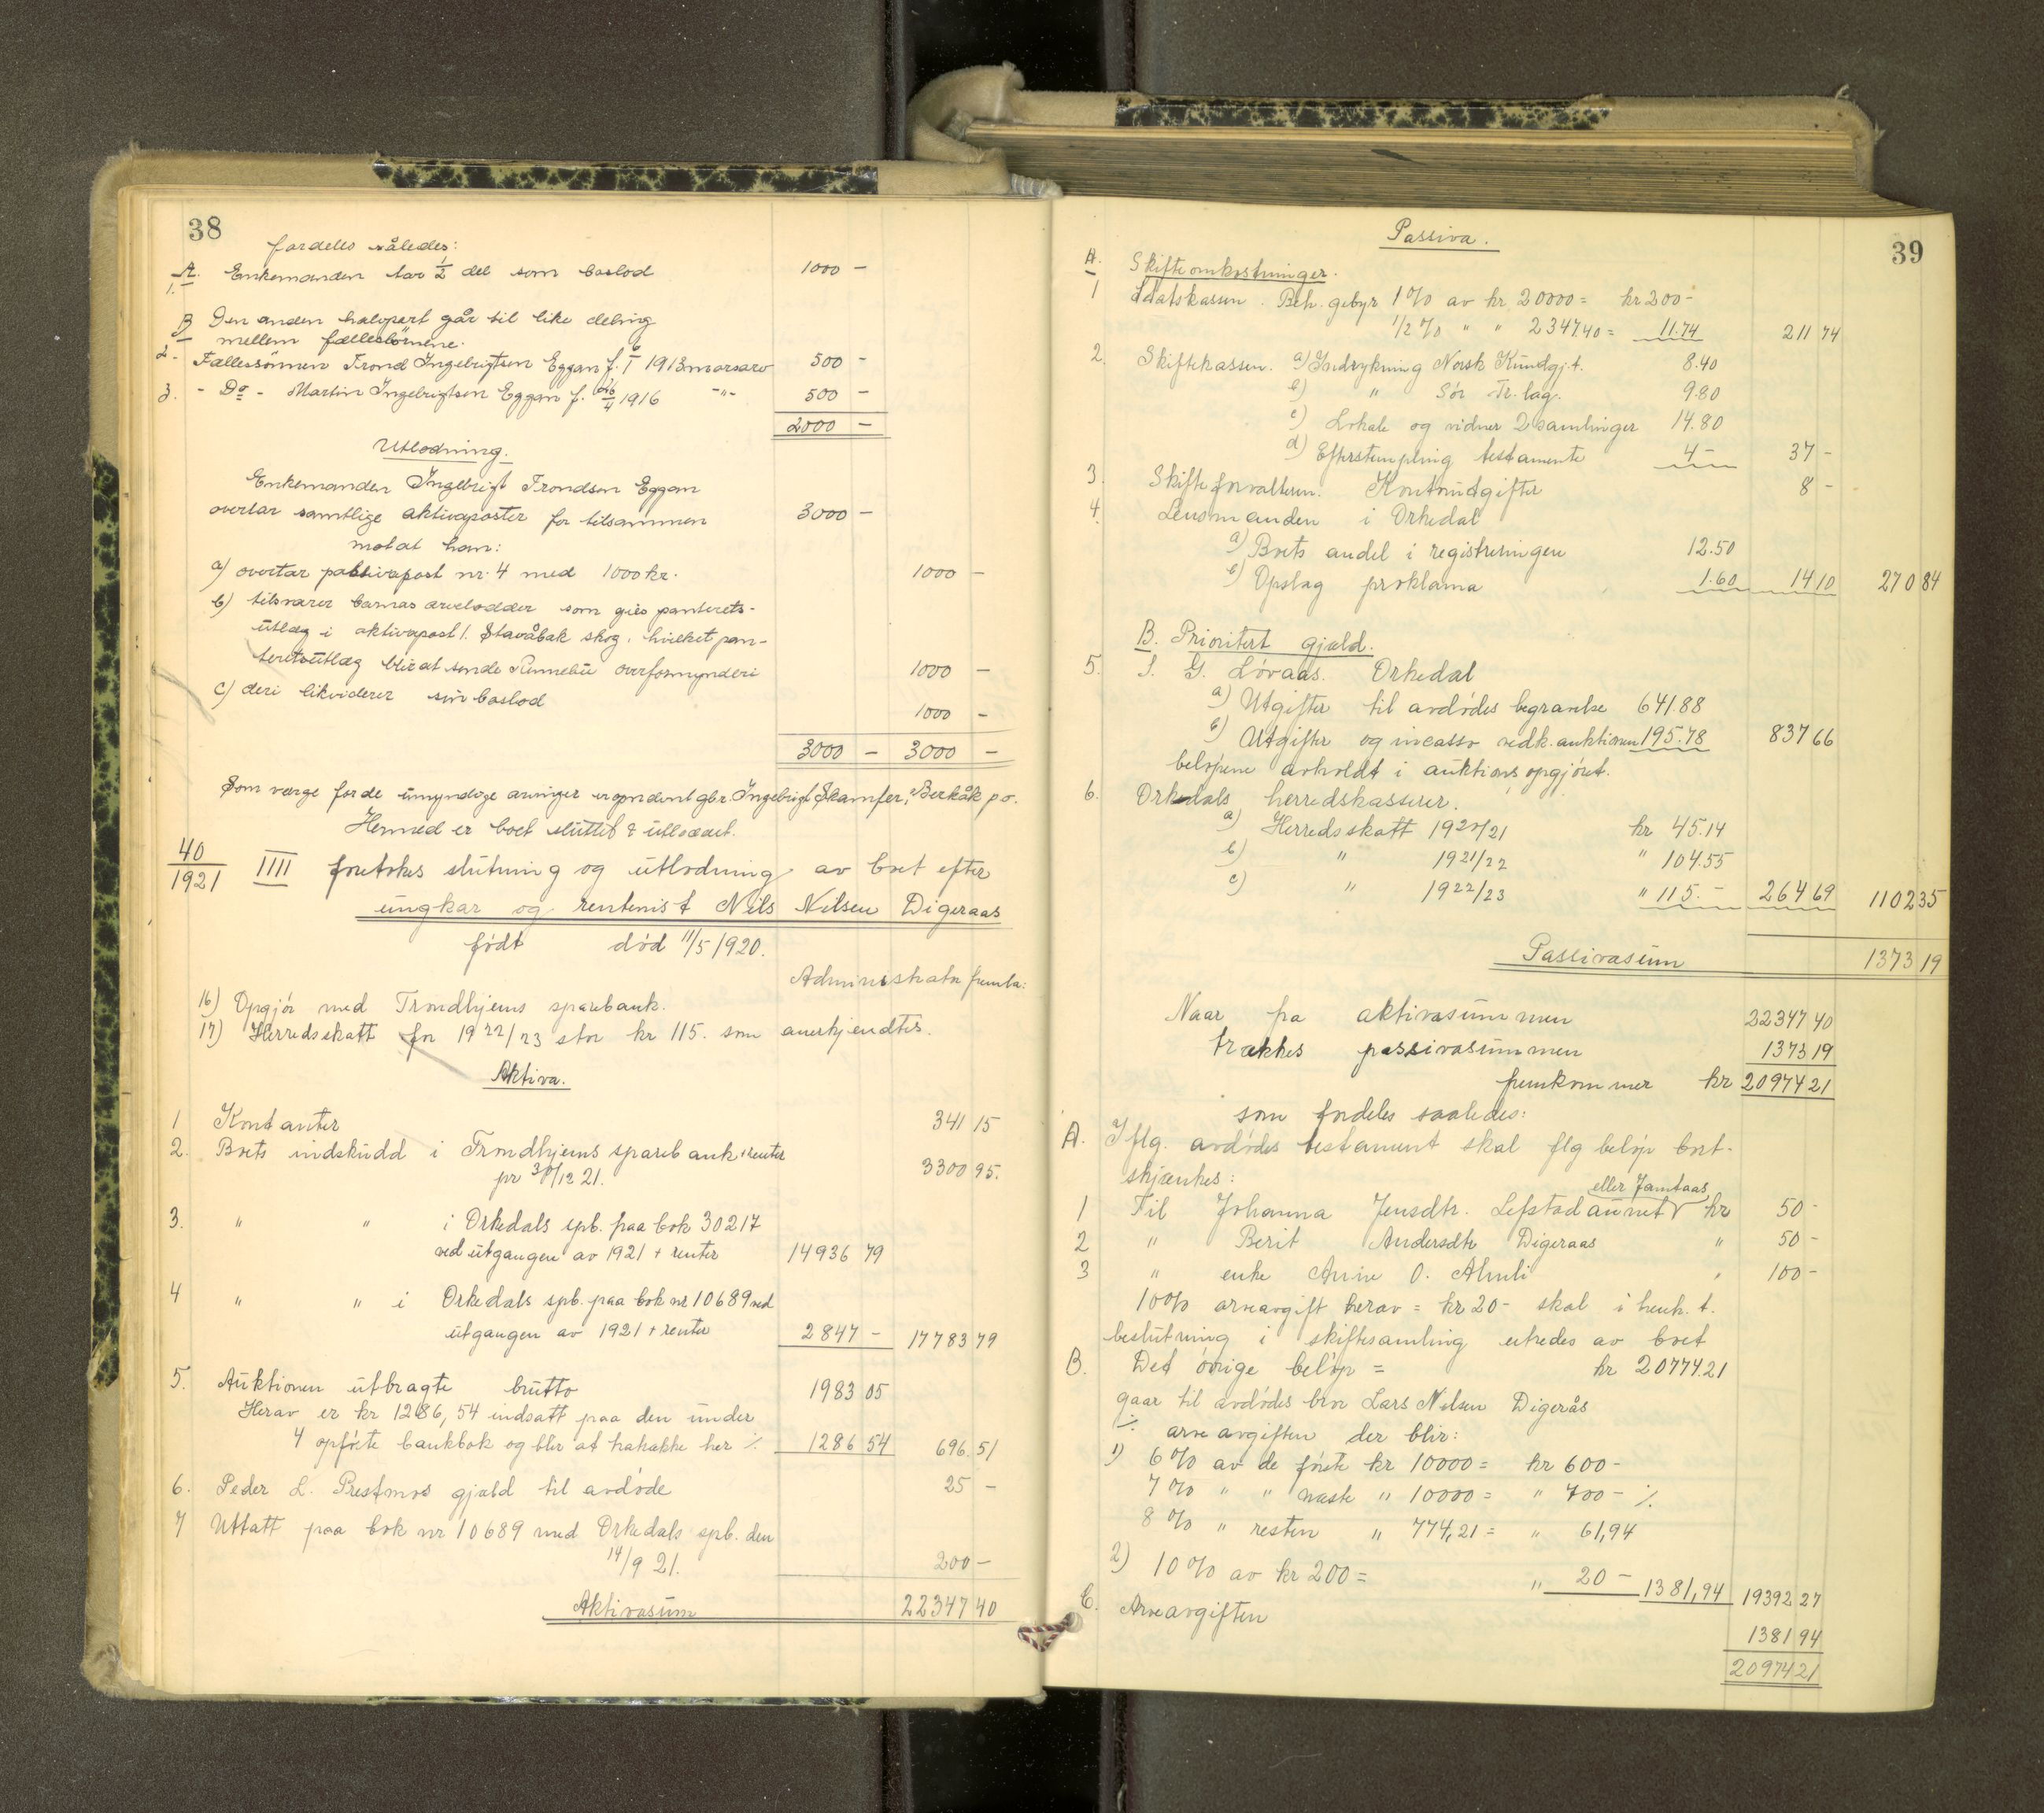 38
fordeles således:
A. Enkemanden tar 1/2 del som boslod 1000 –
1.
B Den anden halvpart går til like deling
mellem fællesbörnene.
2 - Fællessönnen Trond Ingebrigtsen Eggan f. 6/1 1913 morsarv 500 –
3. - Do - Martin Ingebrigtsen Eggan f. 26/4 1916 -"- 500 –
2000 –
Utlodning.
Enkemanden Ingebrigt Trondsen Eggan
overtar samtlige aktivaposter for tilsammen 3000 –
mot at han:
a) overtar passivapost nr. 4 med 1000 kr. 1000 –
b) tilsvarer barnas arvelodder som gies panterets-
utlæg i aktivapost 1. Stavåbak skog, hvilket pan-
teretsutlæg blir at sende Rennebu overformynderi 1000 –
c) deri likviderer sin boslod 1000 –
3000 – 3000 –
Som værge for de umyndige arvinger er opnævnt gbr. Ingebrigt Skamfer, Berkåk p.o.
Hermed er boet sluttet & utloddet.
40/1921 IIII foretokes slutning og utlodning av boet efter
ungkar og rentenist Nils Nilsen Digeraas
født død 11/5 1920.
Administrator fremla:
16) Opgjør med Trondhjems sparebank.
17) Herredsskatt for 1922/23 stor kr 115. som anerkjendtes.
Aktiva.
1 Kontanter 341 15
2. Boets indskudd i Trondhjems sparebank + renter
pr 30/12 21. 3300 95.
3. " " i Orkedals spb. paa bok 30217
ved utgangen av 1921 + renter 14936 79
4 " " i Orkedals spb. paa bok nr 10689 ved
utgangen av 1921 + renter 2847 – 17783 79
5. Auktionen utbragte brutto 1983 05
Herav er kr 1286,54 indsatt paa den under
4 opførte bankbok og blir at fratrække her ./. 1286 54 696 51
6. Peder L. Prestmos gjæld til avdøde 25 –
7 Uttatt paa bok nr 10689 med Orkedals spb. den
14/9 21. 200 –
Aktivasum 22347 40
39
Passiva.
A. Skifteomkostninger.
1 Statskassen. Beh. gebyr 1% av kr 20000 = kr 200 -
1/2 % " " 2347.40 = 11.74 211 74
2. Skiftekassen. a) Indrykning Norsk Kundgj.t. 8.40
b) " Sør Tr.lag. 9.80
c) Lokale og vidner 2 samlinger 14.80
d) Efterstempling testamente 4 – 37 –
3. Skifteforvalteren. Kontorutgifter 8 –
4. Lensmanden i Orkedal
a) Boets andel i registreringen 12.50
b) Opslag proklama 1.60 14 10 270 84
B. Prioritert gjæld.
5. S. G. Løvaas. Orkedal
a) Utgifter til avdødes begravelse 641.88
b) Utgifter og incasso vedk. auktionen 195.78 837 66
beløpene avholdt i auktionsopgjøret.
6. Orkedals herredskasserer.
a) Herredsskatt 1920/21 kr 45.14
b) " 1921/22 " 104.55
c) " 1922/23 " 115. – 264 69 1102 35
Passivasum 1373 19
Naar fra aktivasummen 22347 40
trækkes passivasummen 1373 19
fremkommer kr 20974 21
som fordeles saaledes:
A. Iflg. avdødes testament skal flg beløp bort-
skjænkes:
eller Jamtaas
1 Til Johanna Jensdtr. Lefstadaunet kr 50 -
2 " Berit Andersdtr Digeraas " 50 –
3 " enke Anne O. Almli " 100 –
10% arveavgift herav = kr 20 – skal i henh. t.
beslutning i skiftesamling utredes av boet
B. Det øvrige beløp = kr 20774.21
gaar til avdødes bror Lars Nilsen Digerås
./. arveavgiften der blir:
1) 6% av de første kr 10000 = kr 600 –
7% " " næste " 10000 = " 700 – ./.
8% " resten " 774,21 = " 61,94
2) 10% av kr 200 = " 20 – 1381,94 19392 27
C. Arveavgiften 1381 94
20974 21